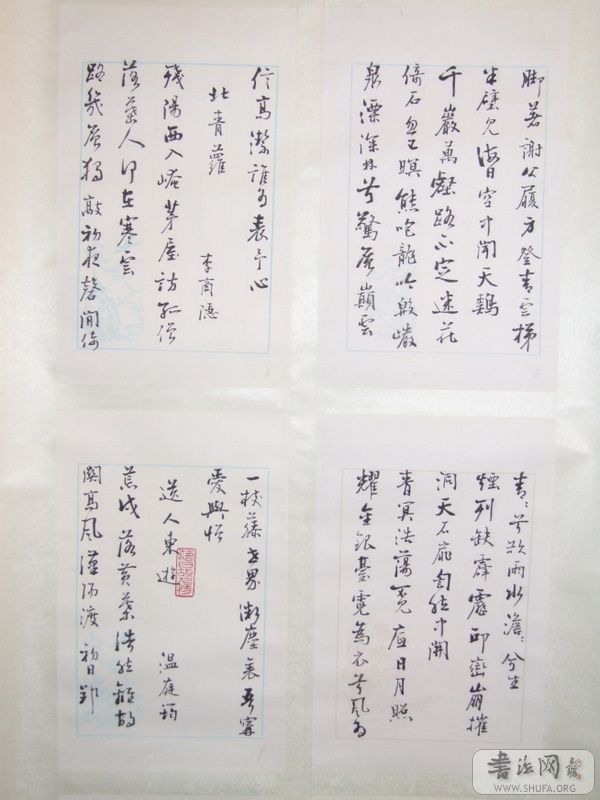 脚著謝公屐身登青雲梯
半壁見海日空中聞天鷄
千巖萬壑路不定迷花
倚石忽已暝熊咆龍吟殷巖
泉慄深林兮驚層巔雲
青〻兮欲雨水澹〻兮生
煙列缺霹靂邱巒崩摧
洞天石扉訇然中開
青冥浩蕩不見底日月照
耀金銀臺霓為衣兮風為
信高潔誰為表予心
北青蘿
李商隱
殘陽西入崦茅屋訪孤僧
落葉人何在寒雲
路幾層獨敲初夜磬閒倚
一枝藤世界微塵裏吾寧
愛與憎
送人東遊
溫庭筠
荒戍落黃葉浩然離故
關高風漢陽渡初日郢
書法网
WWW.SHUFA.ORG